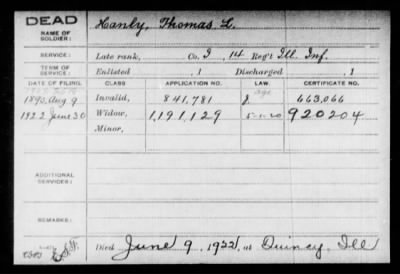 DEAD
NAME OF SOLDIER:
Hanly, Thomas L.
SERVICE:
Late rank, Co. I, 14 Reg't Ill. Inf.
TERM OF SERVICE:
Enlisted , 1 Discharged , 1
DATE OF FILING. CLASS APPLICATION NO. LAW. CERTIFICATE NO.
1890, Aug. 9 Invalid, 841,781 663,066
1922 June 30 Widow, 1,191,129 5-1-20 920204
Minor,
ADDITIONAL SERVICES:
REMARKS:
Died June 9, 1922, at Quincy, Ill